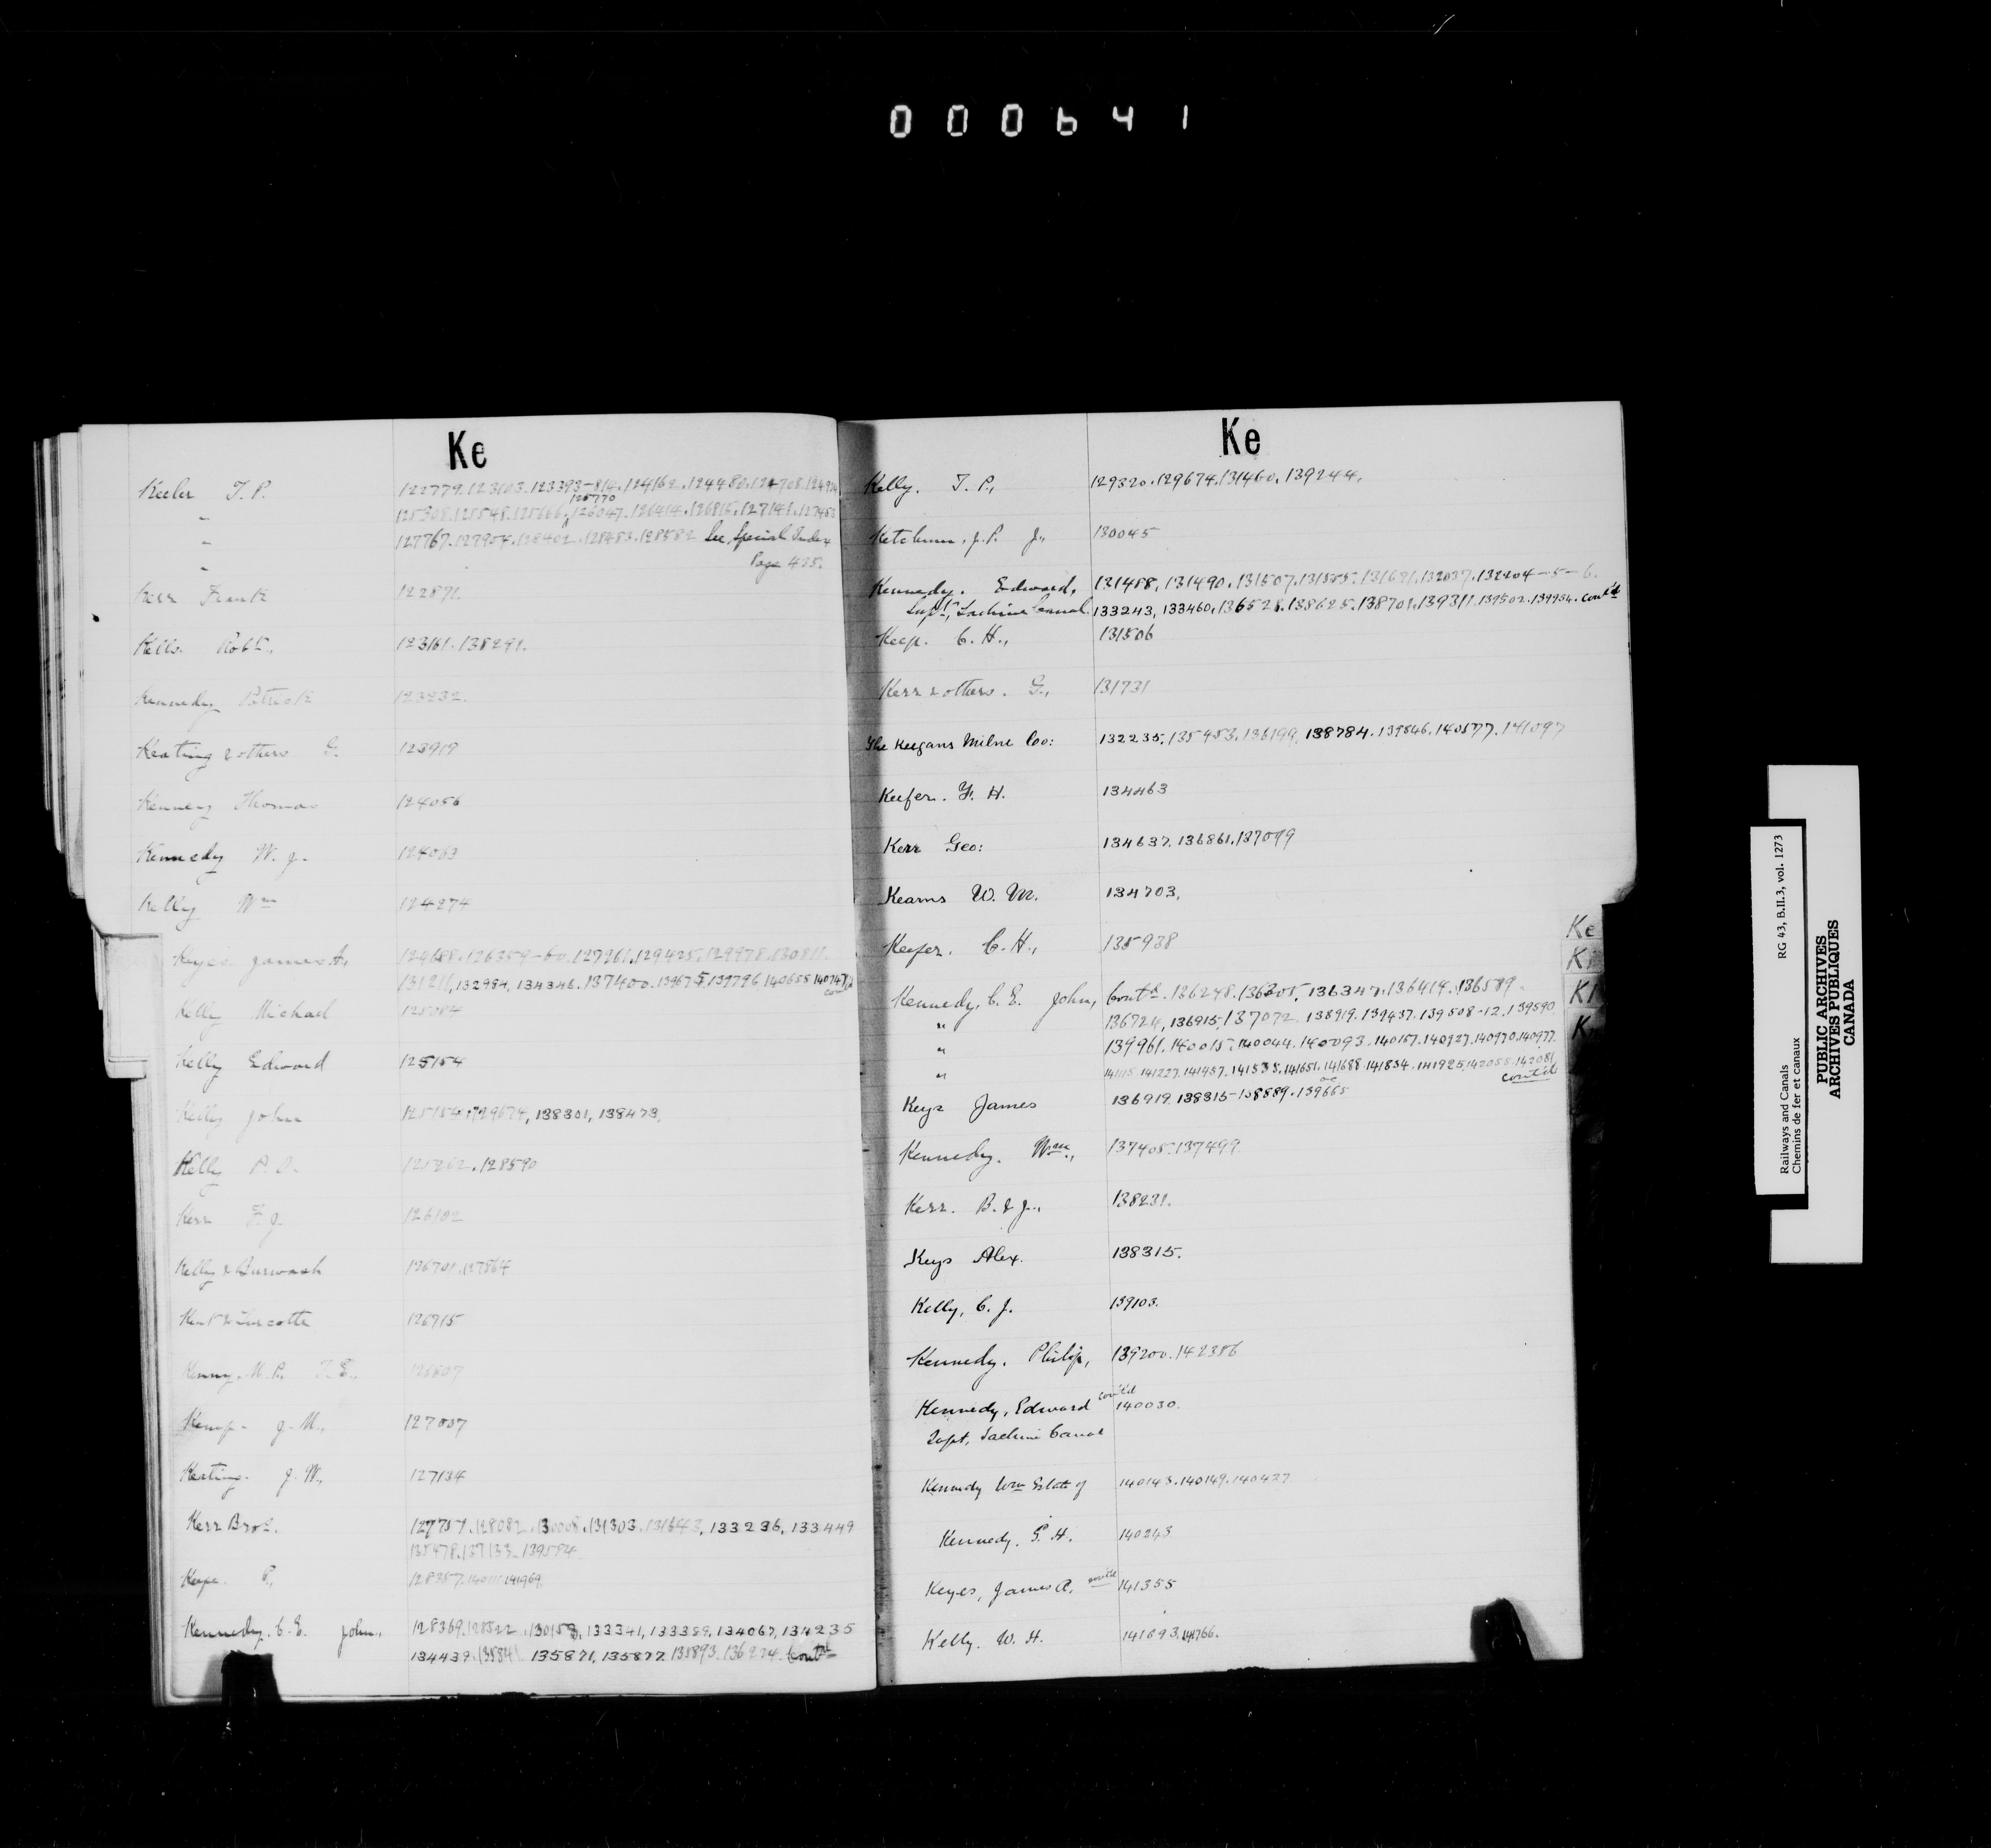 000641
Ke
Keeler T. P. 122779.123103.123393-814.124162.124480.124708.124924
125770
" 125308.125548.125666.126047.126414.126815.127141.127453
" 127767.127954.128402.128483.128582 See Special Index
" Page 435.
Kerr Frank 122891.
Kells. Robt., 123161.138291.
Kennedy Patrick 123232.
Keating & others G. 123919
Kenney Thomas 124056
Kennedy W. J. 124063
Kelly Wm 124274
Keyes James A., 124688.126359-60.127261.129425.129978.130811.
131211, 132984, 134346.137400.139675.139796.140658.140747
Kelly Michael 125084
Kelly Edward 125154
Kelly John 125154.129674, 138301, 138473.
Kelly P. D. 125262.128590
Kerr F. J. 126102
Kelly & Burwash 126701.127864
Kent & Turcotte 126715
Kenny. M.P. T. E., 126807
Kemp. J. M., 127007
Keating. J. W., 127134
Kerr Bros. 127757.128082.130008.131303.131643, 133236, 133449
135478.137133.139584
P., 128357.141969
Kennedy. C.E. John., 128369.128522.130153, 133341, 133389, 134067, 134235
134439. 135871, 135877.135893.136224 Contd
Ke
Kelly. T. P., 129320.129674.131460.139244.
Ketchum. J.P. J., 130045
Kennedy. Edward, 131458, 131490.131507.131585.131621.132037.132204-5-6.
Supt, Lachine Canal. 133243, 133460, 136528.138625.138701.139311.139502.139954. cont'd
Keep. C. H., 131506
Kerr & others. G., 131731
The Keegans Milne Co: 132235.135953.136199.138784.139846.140577.141097
Keefer. F. H. 134463
Kerr Geo: 134637.136861.137099
Kearns W. M. 134703.
Keefer. C. H., 135938
Kennedy, C. E. John, Contd. 136248.136305, 136347.136414.136589.
" 136724, 136915.137072.138919.139437.139508-12.139590
" 139961.140015.140044.140093.140157.140927.140970.140977.
" 141115.141227.141457.141535.141651.141688.141834.141925.142058.142081
cont'd
Keys James 136919.138315-138889.139665
Kennedy. Wm., 137405.137499
Kerr. B. & J., 138231.
Keys Alex. 138315.
Kelly, C. J. 139103.
Kennedy. Philip, 139200.142386
Kennedy, Edward cont'd 140030.
Supt, Lachine Canal
Kennedy Wm Estate of 140143.140149.140427
Kennedy. G. H. 140243
Keyes, James A. cont'd 141355
Kelly. W. H. 141693.141766.
Ke
Railways and Canals RG 43, B.II.3, vol. 1273
Chemins de fer et canaux
PUBLIC ARCHIVES
ARCHIVES PUBLIQUES
CANADA